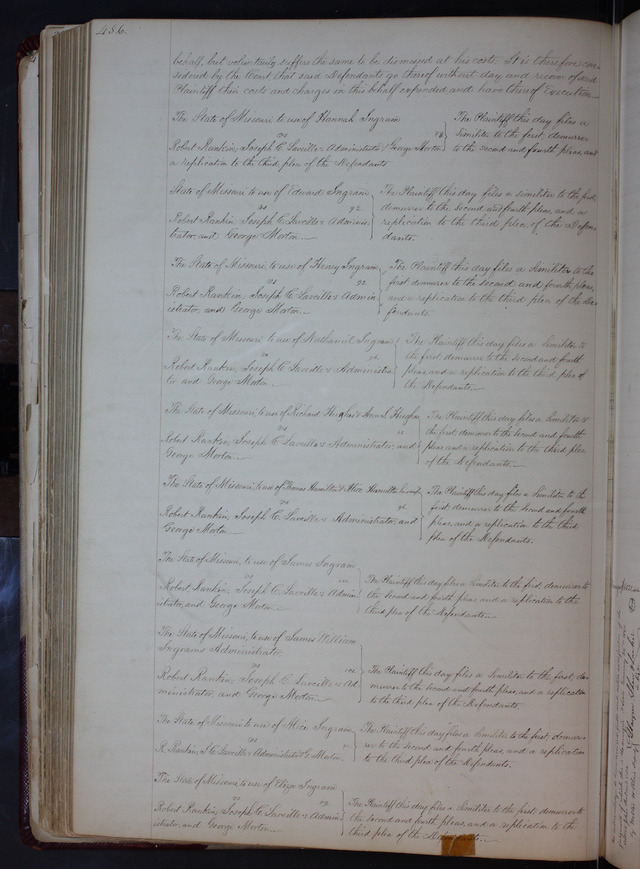 486.
behalf, but voluntarily suffers the same to be dismissed at his costs. It is therefore con-
sidered by the Court that said Defendants go thereof without day and recover of said
Plaintiff their costs and charges in this behalf expended, and have thereof Execution.
The State of Missouri to use of Hannah Ingram
vs
Robert Rankin, Joseph C. Laveille's Administrator & George Morton
The Plaintiff this day files a
Similiter to the first, demurrer
to the second and fourth pleas, and
a replication to the third plea of the Defendants
State of Missouri to use of Edward Ingram
vs 92.
Robert Rankin, Joseph C. Laveille's Adminis-
trator, and George Morton.
The Plaintiff this day files a similiter to the first,
demurrer to the second and fourth pleas, and a
replication to the third plea, of the Defen-
dants.
The State of Missouri, to use of Henry Ingram
vs 92.
Robert Rankin, Joseph C. Laveille's Admin-
istrator, and George Morton.
The Plaintiff this day files a Similiter to the
first, demurrer to the second and fourth pleas,
and a replication to the third plea of the De-
fendants.
The State of Missouri to use of Nathaniel Ingram
vs
Robert Rankin, Joseph C. Laveille's Administra-
tor and George Morton.
The Plaintiff this day files a Similiter to
the first, demurrer to the second and fourth
pleas, and a replication to the third plea of
the Defendants.
The State of Missouri, to use of Richard Hughes & Hughes
vs
Robert Rankin, Joseph C. Laveille's Administrator, and
George Morton.
The Plaintiff this day files a Similiter to
the first, demurrer to the second and fourth
pleas and a replication to the third plea
of the Defendants.
The State of Missouri, to use of Thomas Hamilton & Alice Hamilton
vs
Robert Rankin, Joseph C. Laveille's Administrator, and
George Morton
The Plaintiff this day files a Similiter to the
first, demurrer to the second and fourth
pleas, and a replication to the third
plea of the Defendants.
The State of Missouri, to use of James Ingram
vs
Robert Rankin, Joseph C. Laveille's Admin-
istrator, and George Morton.
The Plaintiff this day files a Similiter to the first, demurrer to
the second and fourth pleas and a replication to the
third plea of the Defendants.
The State of Missouri, to use of James William
Ingrams Administrator
vs
Robert Rankin, Joseph C. Laveille's Ad-
ministrator, and George Morton.
The Plaintiff this day files a Similiter to the first, de-
murrer to the second and fourth pleas, and a replication
to the third plea of the Defendants.
The State of Missouri to use of Alice Ingram
vs
R. Rankin, J. C. Laveille's Administrator & G. Morton.
The Plaintiff this day files a Similiter to the first, demur-
rer to the second and fourth pleas, and a replication
to the third plea of the Defendants.
The State of Missouri to use of Eliza Ingram
vs
Robert Rankin, Joseph C. Laveille's Admin-
istrator, and George Morton.
The Plaintiff this day files a Similiter to the first, demurrer to
the second and fourth pleas, and a replication to the
third plea of the Defendants.